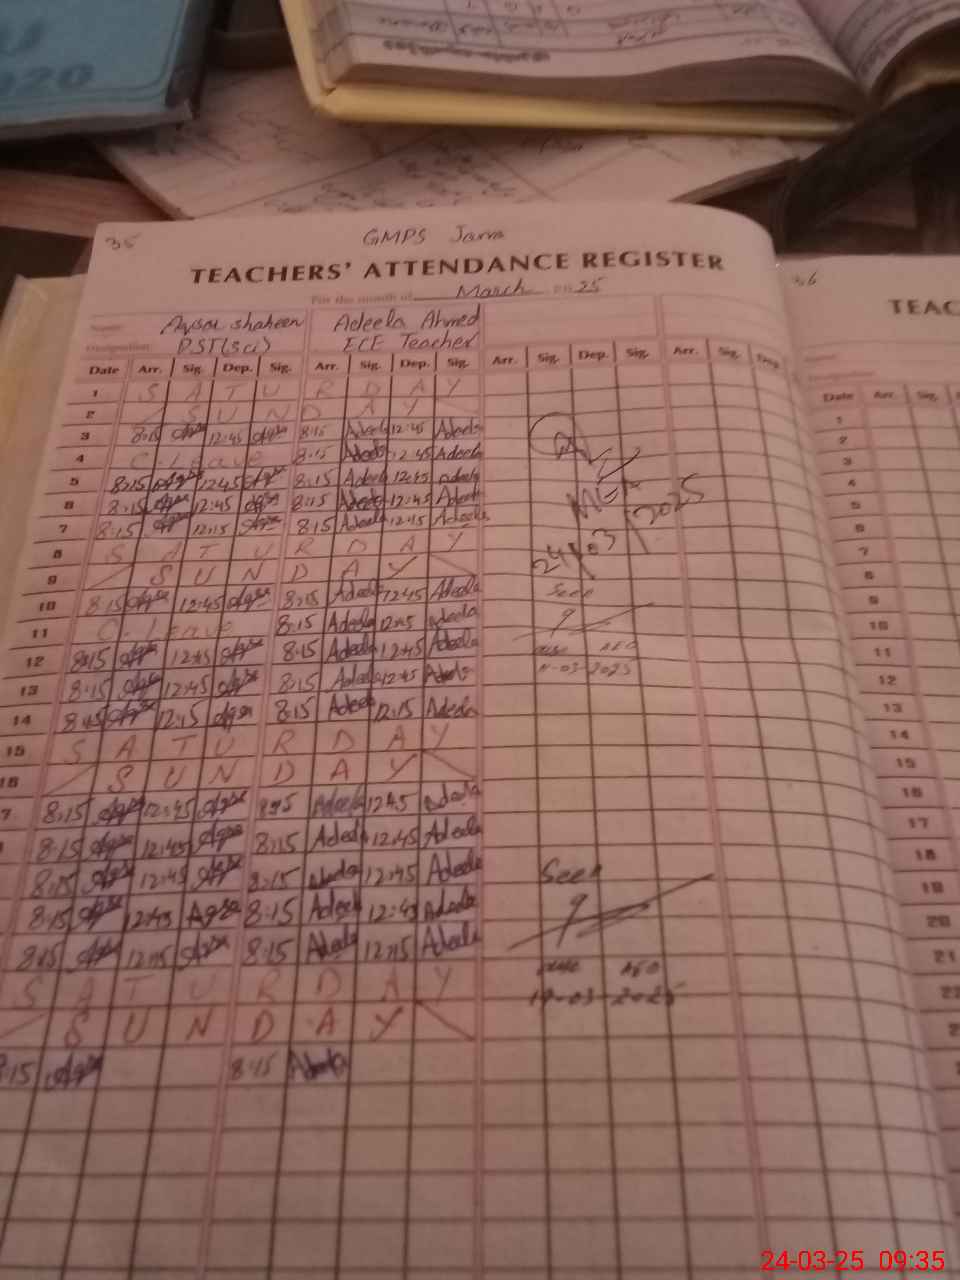 2020
35
GMPS Jarra
TEACHERS' ATTENDANCE REGISTER
For the month of March 2025
Name: Aqsa shaheen Adeela Ahmed
Designation PST(Sci) ECE Teacher
Date Arr. Sig. Dep. Sig. Arr. Sig. Dep. Sig. Arr. Sig. Dep. Sig. Arr. Sig. Dep.
1 S A T U R D A Y
2 S U N D A Y
3 8:15 Aqsa 12:45 Aqsa 8:15 Adeela 12:45 Adeela
4 C. Leave 8:15 Adeela 12:45 Adeela
5 8:15 Aqsa 12:45 Aqsa 8:15 Adeela 12:45 Adeela
6 8:15 Aqsa 12:45 Aqsa 8:15 Adeela 12:45 Adeela
7 8:15 Aqsa 12:15 Aqsa 8:15 Adeela 12:15 Adeela
8 S A T U R D A Y
9 S U N D A Y
10 8:15 Aqsa 12:45 Aqsa 8:15 Adeela 12:45 Adeela
11 C. Leave 8:15 Adeela 12:45 Adeela
12 8:15 Aqsa 12:45 Aqsa 8:15 Adeela 12:45 Adeela
13 8:15 Aqsa 12:45 Aqsa 8:15 Adeela 12:45 Adeela
14 8:15 Aqsa 12:15 Aqsa 8:15 Adeela 12:15 Adeela
15 S A T U R D A Y
16 S U N D A Y
7 8:15 Aqsa 12:45 Aqsa 8:15 Adeela 12:45 Adeela
8:15 Aqsa 12:45 Aqsa 8:15 Adeela 12:45 Adeela
8:15 Aqsa 12:45 Aqsa 8:15 Adeela 12:45 Adeela
8:15 Aqsa 12:45 Aqsa 8:15 Adeela 12:45 Adeela
8:15 Aqsa 12:15 Aqsa 8:15 Adeela 12:15 Adeela
S A T U R D A Y
S U N D A Y
8:15 Aqsa 8:15 Adeela
MEA
24/03/2025
Seen
AEO
11-03-2025
Seen
AEO
19-03-2025
36
TEAC
Date Arr. Sig.
1
2
3
4
5
6
7
8
9
10
11
12
13
14
15
16
17
18
19
20
21
22
24-03-25 09:35